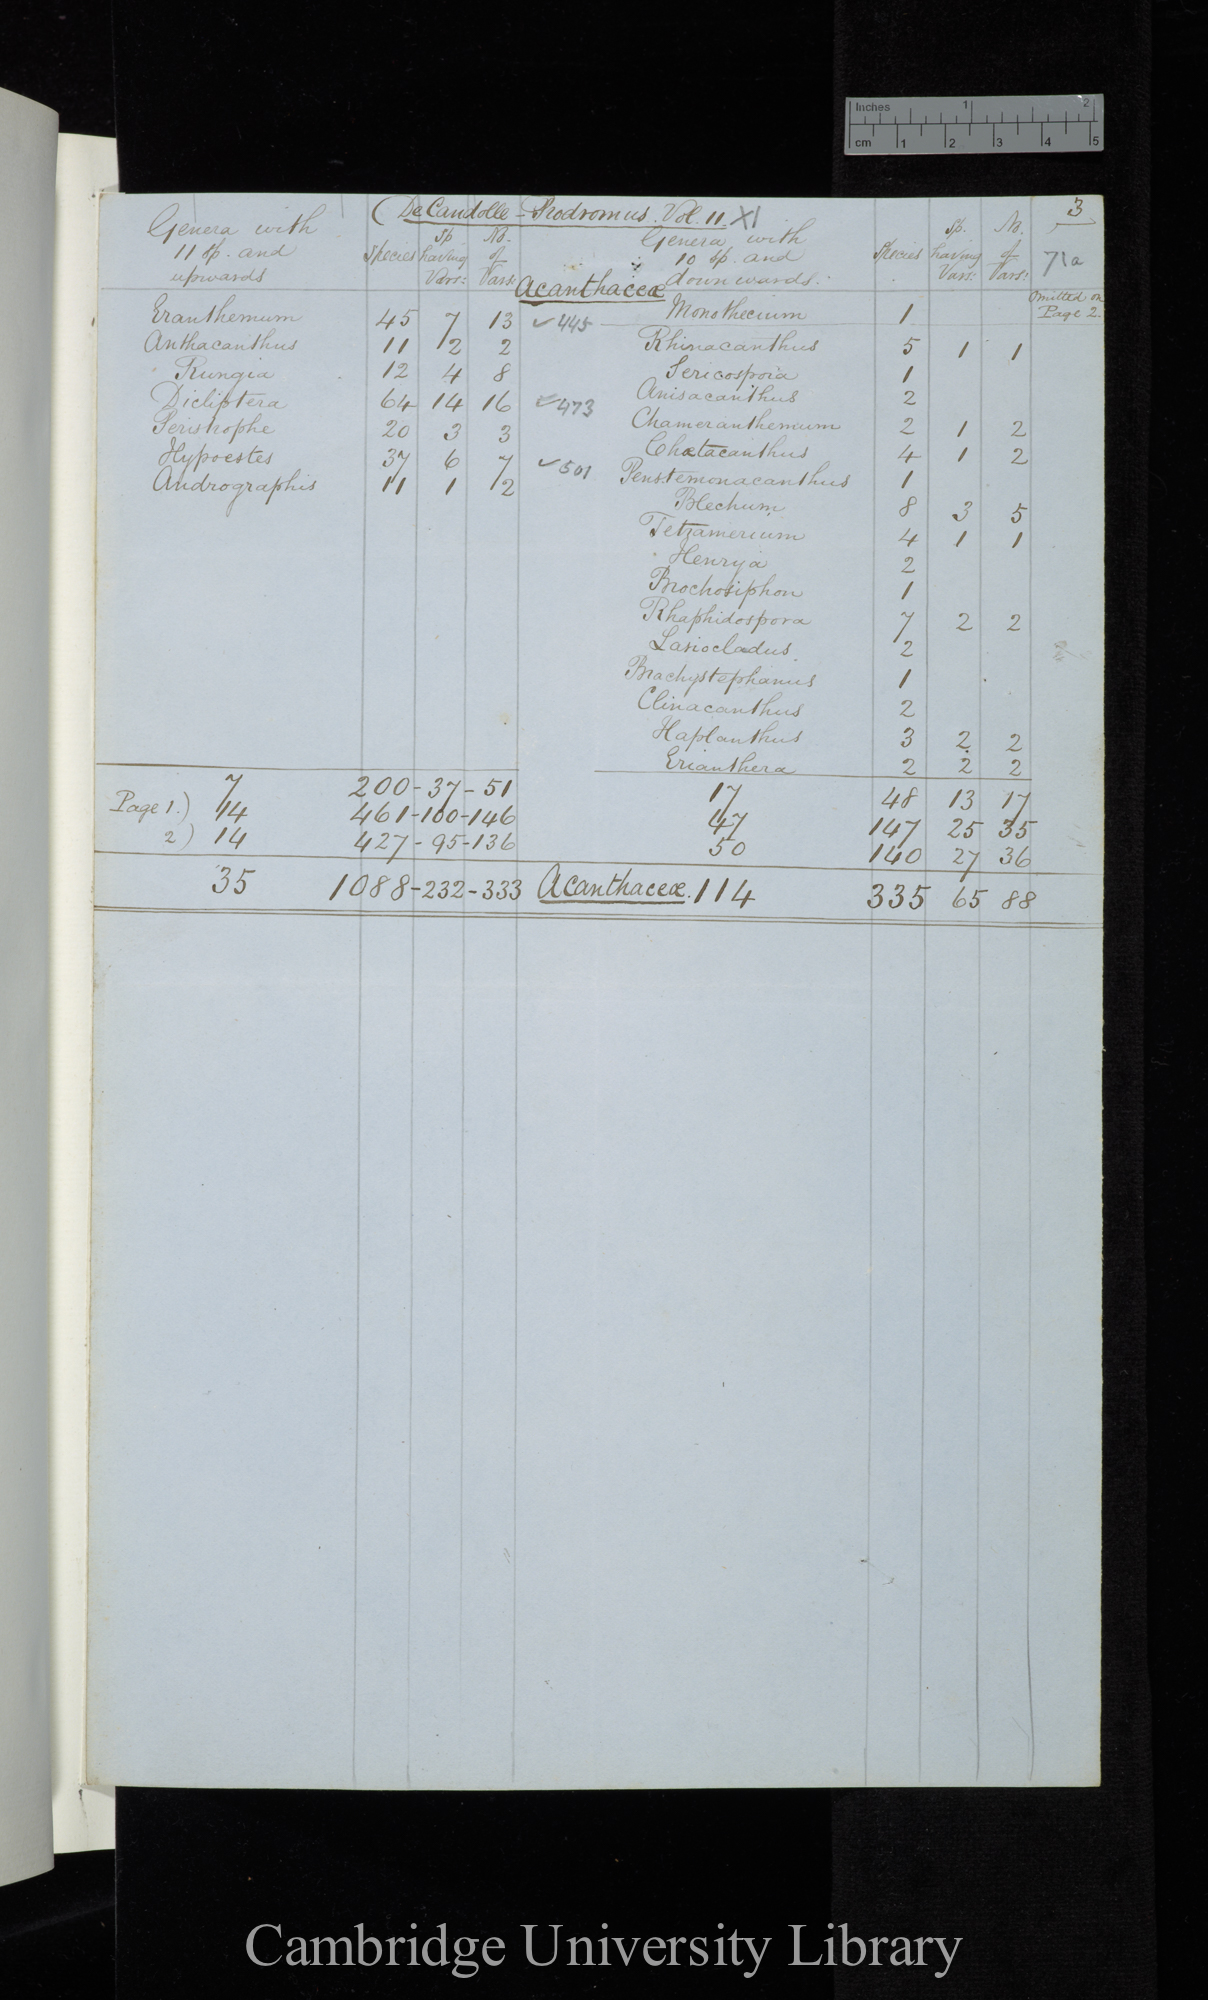 Inches 1 2
cm 1 2 3 4 5
(DeCandolle - Prodromus. Vol. 11. XI
3
71a
Genera with 11 Sp. and upwards
Species
Sp having Vars:
No. of Vars:
Genera with 10 Sp. and downwards:
Species
Sp. having Vars:
No. of Vars:
Acanthaceæ
Omitted on Page 2.
Eranthemum 45 7 13 ✓445 Monothecium 1
Anthacanthus 11 2 2 Rhinacanthus 5 1 1
Rungia 12 4 8 Sericospora 1
Dicliptera 64 14 16 ✓473 Anisacanthus 2
Peristrophe 20 3 3 Chameranthemum 2 1 2
Hypoestes 37 6 7 ✓501 Chætacanthus 4 1 2
Andrographis 11 1 2 Penstemonacanthus 1
Blechum 8 3 5
Tetramerium 4 1 1
Henrya 2
Brochosiphon 1
Rhaphidospora 7 2 2
Lasiocladus 2
Brachystephanus 1
Clinacanthus 2
Haplanthus 3 2 2
Erianthera 2 2 2
7 200 - 37 - 51 17 48 13 17
Page 1.) 14 461 - 100 - 146 47 147 25 35
2) 14 427 - 95 - 136 50 140 27 36
35 1088 - 232 - 333 Acanthaceæ. 114 335 65 88
Cambridge University Library